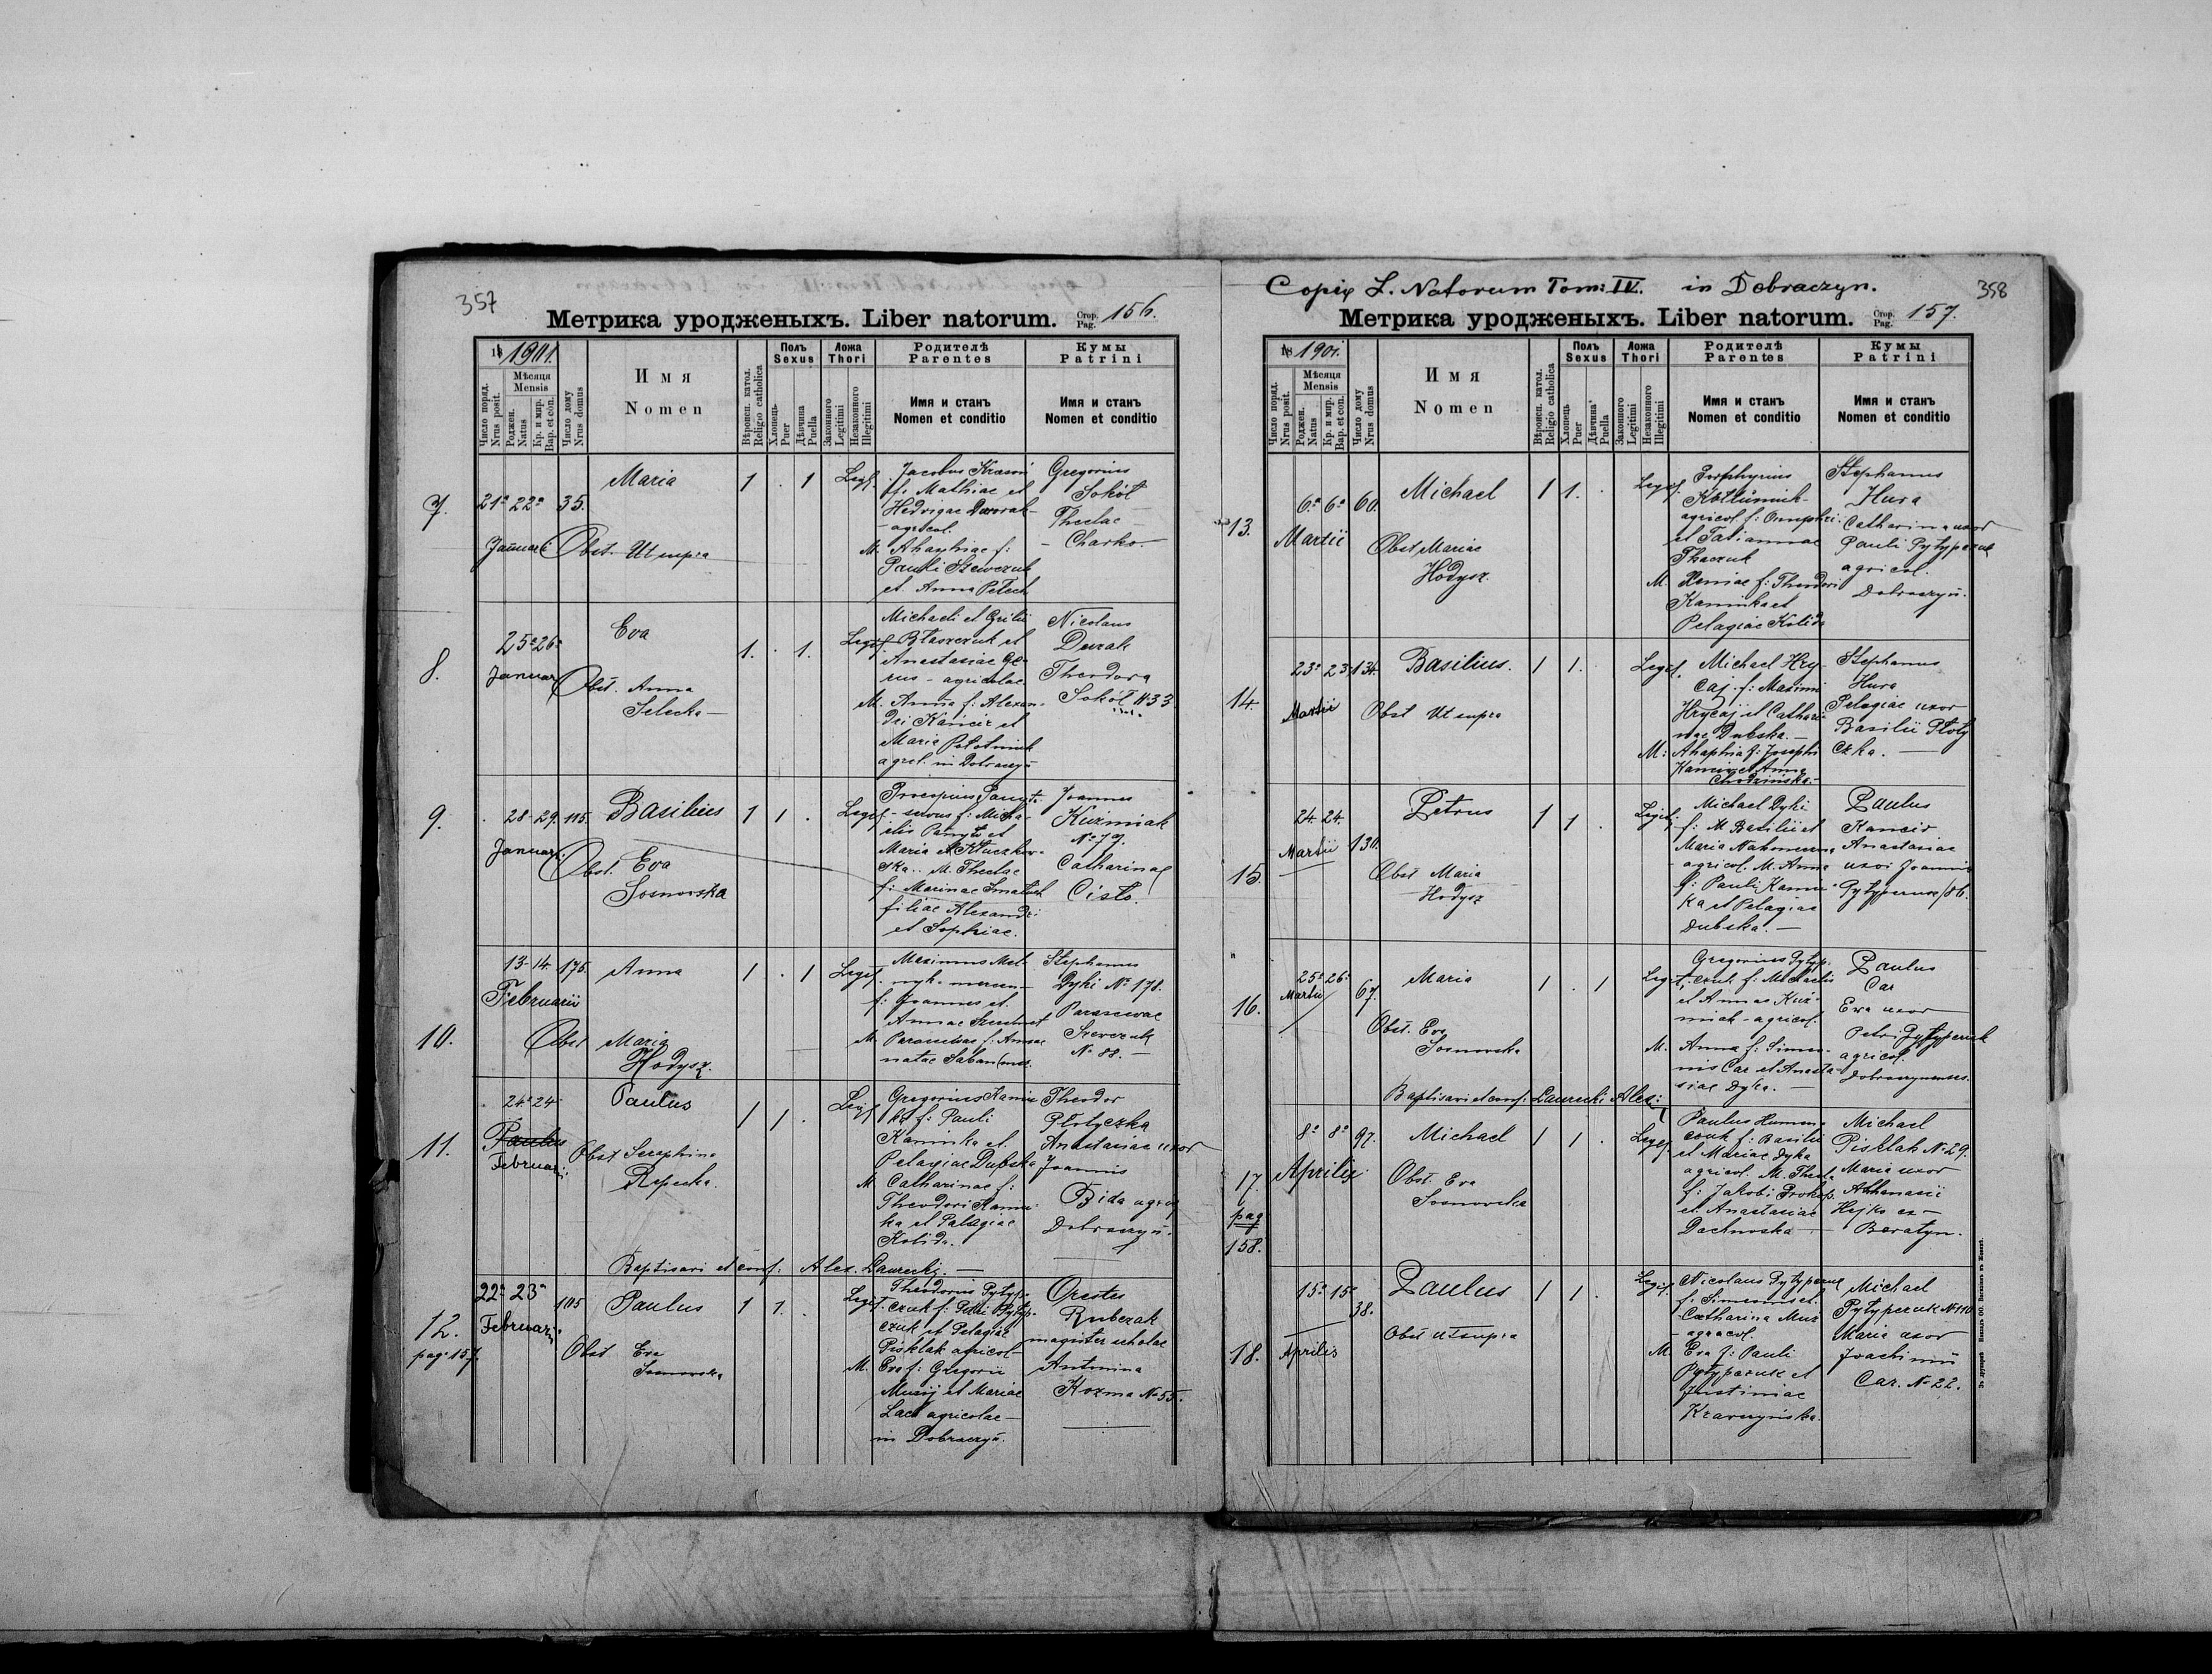 357
Метрика уродженыхъ. Liber natorum. Стор. Pag. 156.
18 1901.
Число поряд. Nrus posit.
Мѣсяця Mensis
Роджен. Natus
Кр. и мир. Bap. et con.
Число дому Nrus domus
Имя
Nomen
Вѣроисп. катол. Religo catholica
Полъ Sexus
Хлопець Puer
Дѣвчина Puella
Ложа Thori
Законного Legitimi
Незаконного Illegitimi
Родителѣ
Parentes
Имя и станъ
Nomen et conditio
Кумы
Patrini
Имя и станъ
Nomen et conditio
7.
21a 22a 35.
Januarii
Maria
Obst. Ut supra
1 . 1 Legit.
Jacobus
f. Mathiae et
Hedvigae Dworak
- agricol.
M. Ahaphiae f:
Pauli Szewczuk
et Anna Petech
Gregorius
Sokół
Theclae
- Charko -
8.
25a 26a
Januar
Eva
Obst. Anna
Selecka -
1. . 1. Legit.
Michaeli et
Błaszczuk et
Anastasiae Ge-
rus - agricolae
M. Anna f: Alexan-
dri Kancir et
Maria
agrcl. in Dobraczyn
Nicolaus
Duzak
Theodora
Sokół N 33
9.
28 - 29. 115.
Januar.
Basilius
Obst. Eva
Sosnowska
1 1 . Legit
Procopius
- servus f: Micha-
elis et
Maria et Kluczkow-
ska. M. Theclae
f: Marinae
filiae Alexandri
et Sophiae.
Joannes
Kuźmiak
No 79.
Catharinae
Cisło.
10.
13 - 14 175.
Februarii
Anna
Obst Maria
Hodysz.
1 . 1 Legit.
Maximus Mel-
nyk - mercen-
f: Joannes et
Annae
M. Parascevae f: Annae
natae Saban
Stephanus
Dyki No 178.
Parascevae
Szewczuk
No 88. -
11.
24a 24
Paulus
Februarii
Paulus
Obst Seraphina
Rzpecka.
1 1 . Legit
Gregorius Kamin-
ka f: Pauli
Kaminka et
Pelagiae Dubska
M. Catharinae f:
Theodori Kamin-
ka et Pelagiae
Kolida.
Theodor
Płotyczka
Anastasiae uxor
Joannis
Bida agric
Dobraczyn.
Baptisavi et conf: Alex. Laurecki. -
12.
pag. 157.
22a 23a 105
Februarii
Paulus
Obst Eva
Sosnowska
1 1. . Legit.
Theodorus Pytyp-
czuk f: Petri Pytyp-
czuk et Pelagiae
Pisklak agricol-
M. Eva f: Gregorii
Muzyj et Mariae
Lach agricolae -
in Dobraczyn.
Orestes
Rubczak
magister scholae
Antonina
Kozma No 55.
Copia L. Natorum Tom: IV. in Dobraczyn.
358
Метрика уродженыхъ. Liber natorum. Стор. Pag. 157.
18 1901.
Число поряд. Nrus posit.
Мѣсяця Mensis
Роджен. Natus
Кр. и мир. Bap. et con.
Число дому Nrus domus
Имя
Nomen
Вѣроисп. катол. Religo catholica
Полъ Sexus
Хлопець Puer
Дѣвчина Puella
Ложа Thori
Законного Legitimi
Незаконного Illegitimi
Родителѣ
Parentes
Имя и станъ
Nomen et conditio
Кумы
Patrini
Имя и станъ
Nomen et conditio
13.
6a 6a 60.
Martii
Michael
Obst Mariae
Hodysz.
1 1. . Legit.
Porphyrius
agricol. f: Onuphri
et Tatiannae
Tkaczuk
M. Xeniae f: Theodori
Kaminka et
Pelagiae Kolida
Stephanus
Hura
Catharina uxor
Pauli Pytypczuk
agricol.
Dobraczyn.
14.
23a 23a 134.
Martii
Basilius.
Obst Ut supra
1 1. Legit.
Michael Hry-
caj. f: Maximi
Hrycaj et Cathari-
nae Dubska. -
M: Ahaphia f: Josephi
Kancir et Anna
Chodzińska. -
Stephanus
Hura
Pelagiae uxor
Basilii Płoty
czka. -
15.
24. 24. 130.
Martii
Petrus
Obst Maria
Hodysz
1 1 . Legit.
Michael Dyki
f: M Basilii et
Maria
- agricol. M. Anna
f: Pauli Kamin-
ka et Pelagiae
Dubska. -
Paulus
Kancir
Anastasiae
uxor Joannis
Pytypczuk / 86.
16.
25a 26a 67.
Martii
Maria
Obst. Eva
Sosnowska
1 . 1 Legit.
Gregorius Pytyp-
czuk f: Michaelis
et Annae Kuź-
miak - agricol.
M. Anna f: Simeo-
nis Car et Anasta-
siae Dyka. -
Paulus
Car
Ewa uxor
Petri Pytypczuk
agricol.
Dobraczynensis.
Baptisavi et conf: Laurecki Alex:
17
pag
158.
8a 8a 97.
Aprilis
Michael
Obst. Eva
Sosnowska
1 1 . Legit.
Paulus Humen-
czuk f: Basilii
et Mariae Dyka
agricol. M. Thecla
f: Jakobi Prokop.
et Anastasiae
Dachnowska -
Michael
Pisklak No 29.
Maria uxor
Athanasii
Hejko ex -
Boratyn.
18.
15a 15a 38.
Aprilis
Paulus
Obst ut supra
1 1 . Legit.
Nicolaus Pytypczuk
f: Simeonis et
Catharina Muz
- agricol.
M Eva f: Pauli
Pytypczuk et
Justiniae
Krawczyńska.
Michael
Pytypczuk No 110
Maria uxor
Joachimi
Car. No 22.